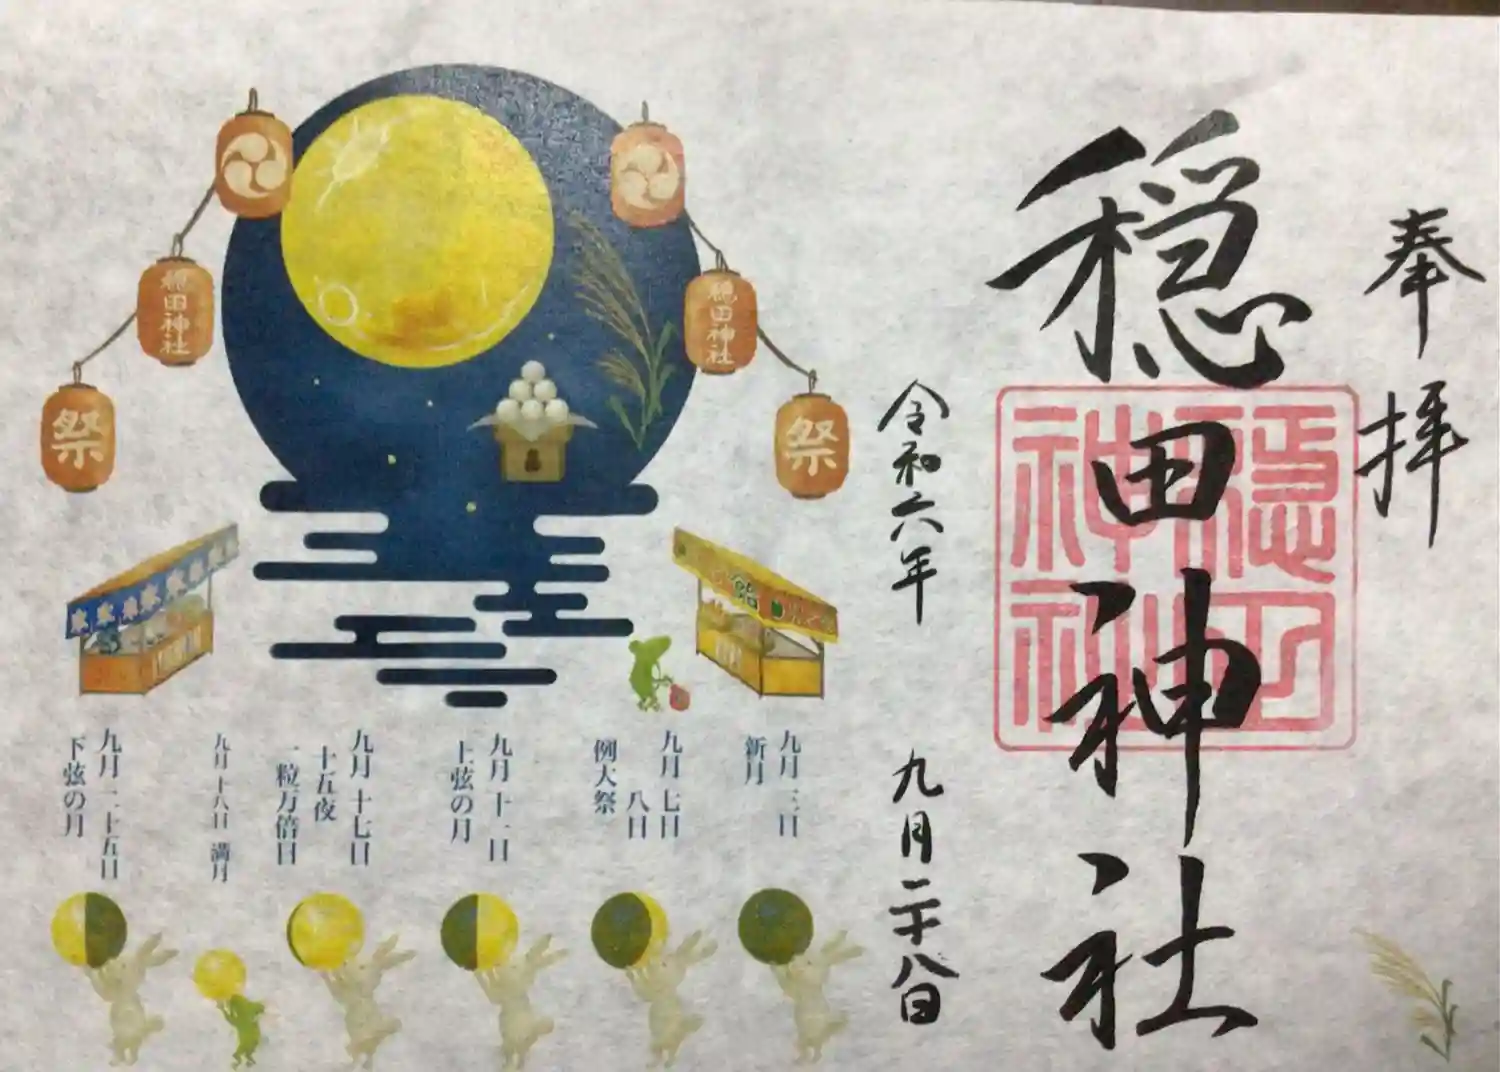 奉拝
穏田神社
穏田神社
令和六年
九月二十八日
祭
穏田神社
穏田神社
祭
九月三日
新月
九月七日
八日
例大祭
九月十一日
上弦の月
九月十七日
十五夜
一粒万倍日
九月十八日 満月
九月二十五日
下弦の月